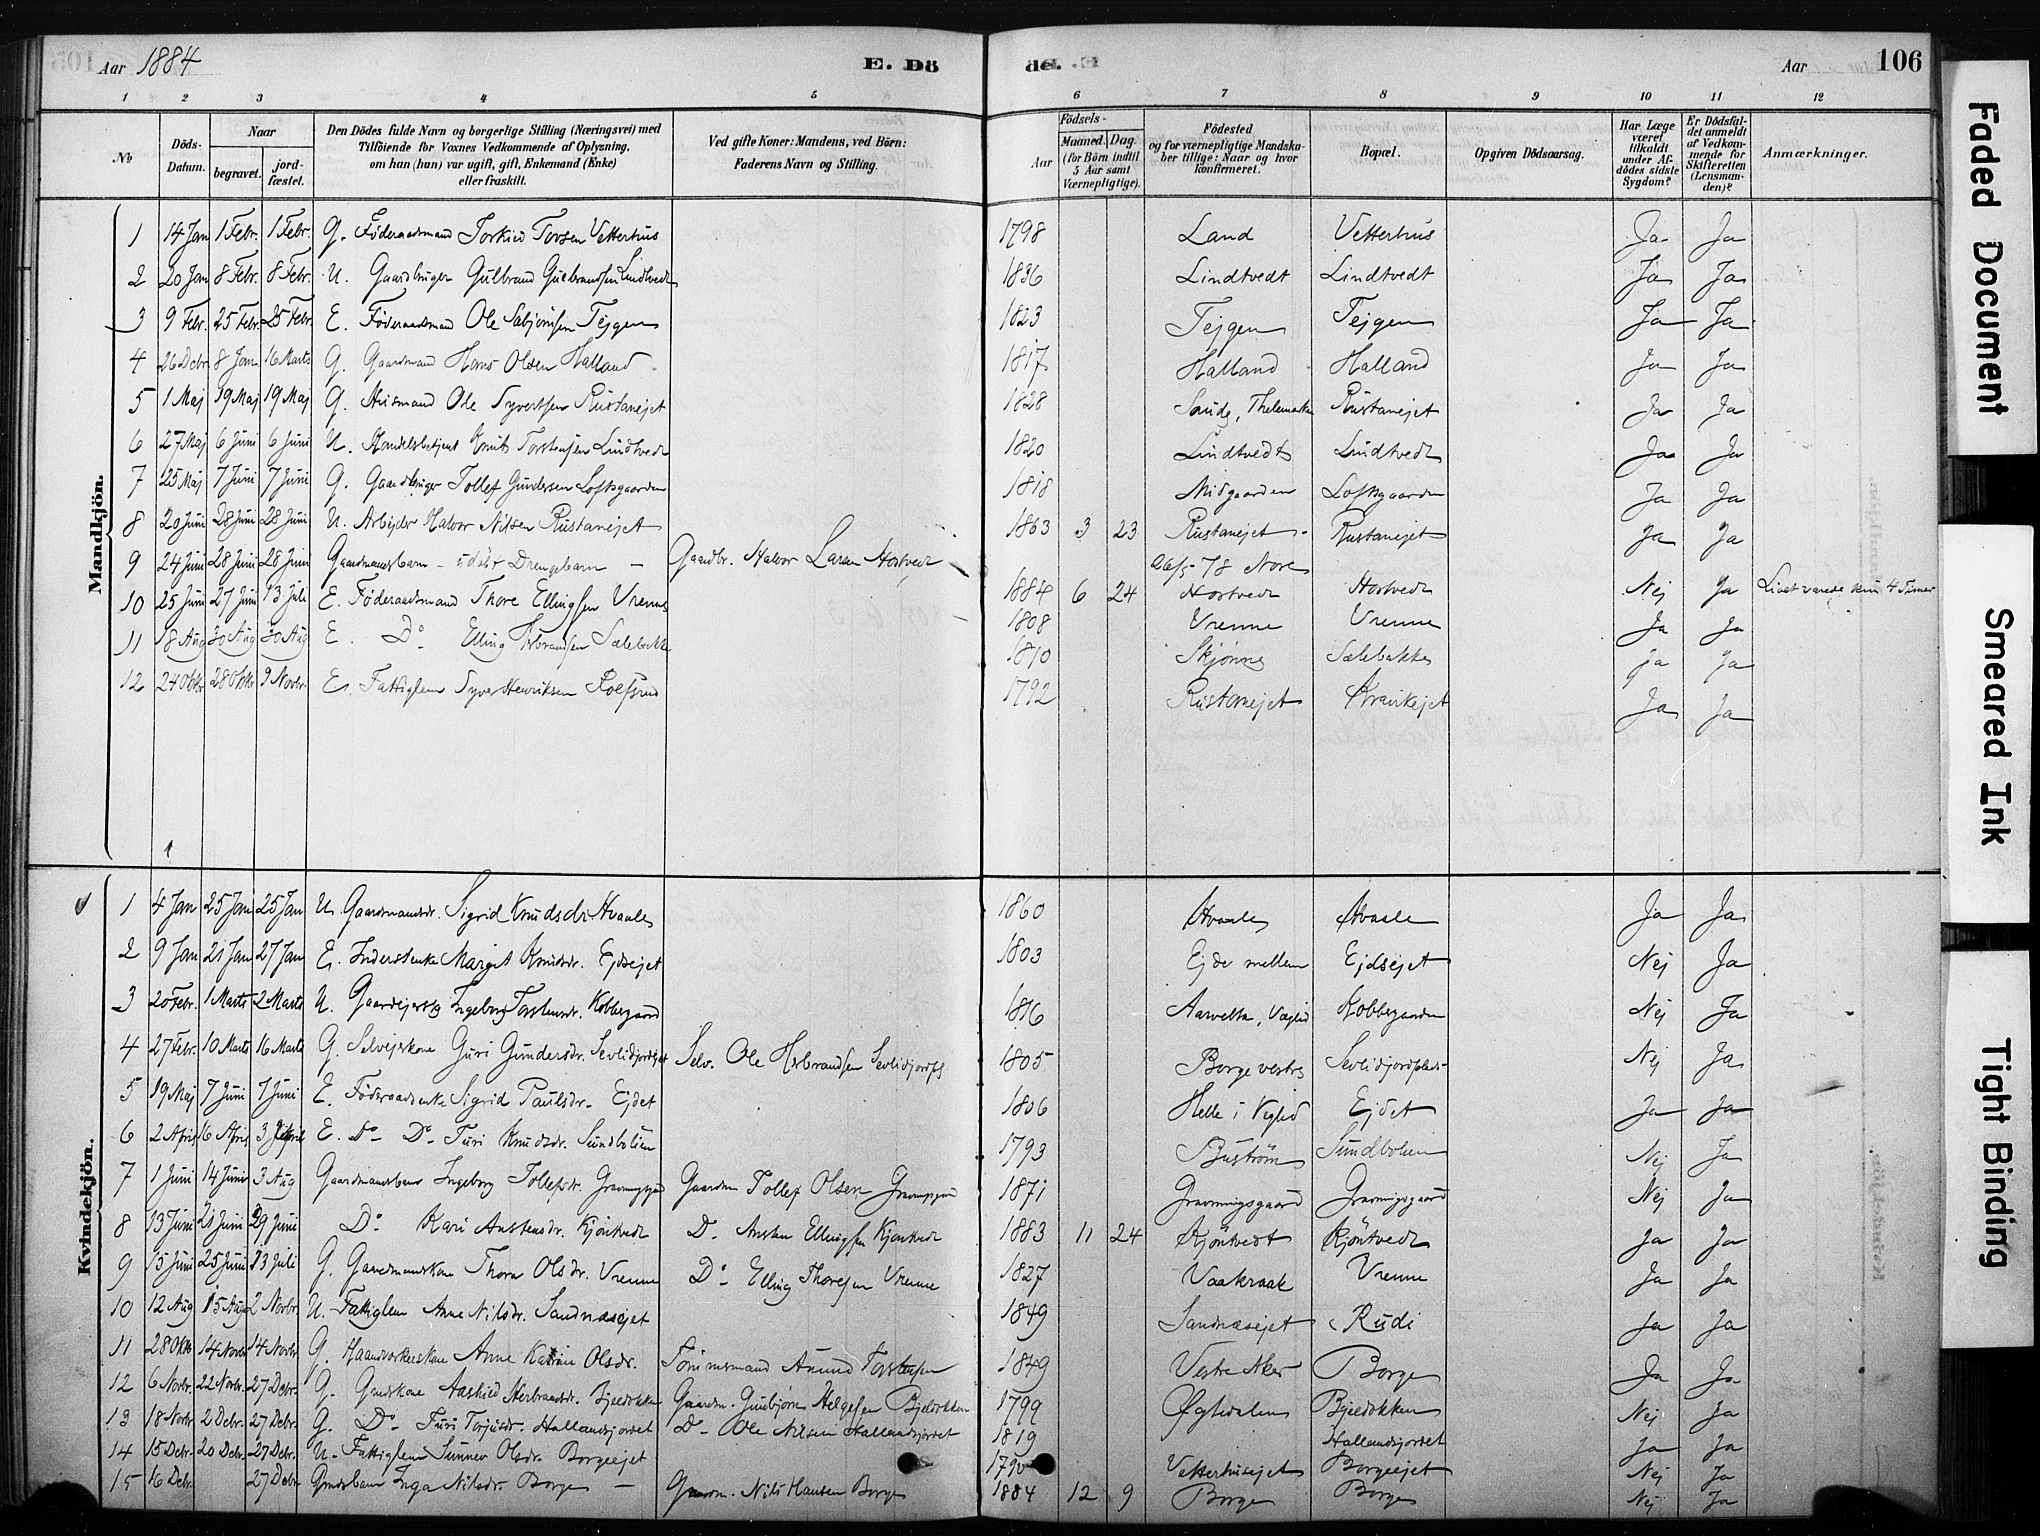 Aar 1884
E. Dö
de.
Aar
106
1 2 3 4 5 6 7 8 9 10 11 12
№
Döds-Datum.
Naar
begravet.
jord-fæstet.
Den Dödes fulde Navn og borgerlige Stilling (Næringsvei) med
Tilföiende for Voxnes Vedkommende af Oplysning,
om han (hun) var ugift, gift, Enkemand (Enke)
eller fraskilt.
Ved gifte Koner: Mandens, ved Börn:
Faderens Navn og Stilling.
Födsels-
Aar
Maaned.
Dag.
(for Börn indtil
5 Aar samt
Værnepligtige).
Födested
og for værnepligtige Mandska-
ber tillige: Naar og hvor
konfirmeret.
Bopæl.
Opgiven Dödsaarsag.
Har Læge
været
tilkaldt
under Af-
dödes sidste
Sygdom?
Er Dödsfal-
det anmeldt
af Vedkom-
mende for
Skifteretten
(Lensman-
den)?
Anmærkninger.
Mandkjön.
1 14 Jan 1 Febr. 1 Febr. G. Föderaadsmand Torkied Tovsen Vetterhus 1798 Land Vetterhus Ja Ja
2 20 Jan 8 Febr. 8 Febr. U. Gaardbruger Gulbrand Gulbrandsen Lindtvedt 1836 Lindtvedt Lindtvedt Ja Ja
3 9 Febr. 25 Febr. 25 Febr. E. Föderaadsmand Ole Tejgen 1823 Tejgen Tejgen Ja Ja
4 26 Decbr. 8 Jan 16 Marts G. Gaardmand Hans Olsen Halland 1817 Halland Halland Ja Ja
5 1 Maj 19 Maj 19 Maj G. Husmand Ole Syvertsen Rustanejet 1828 Saude, Thelemarken Rustanejet Ja Ja
6 27 Maj 6 Juni 6 Juni U. Handelsbetjent Knut Torstensen Lindtvedt 1820 Lindtvedt Lindtvedt Ja Ja
7 25 Maj 7 Juni 7 Juni G. Gaardbruger Tollef Gundersen Loftsgaarden 1818 Midgaarden Loftsgaarden Ja Ja
8 20 Juni 28 Juni 28 Juni U. Arbejder Halvor Nilsen Rustanejet 1863 3 23 Rustanejet. Rustanejet Ja Ja
26/5 78 Nore
9 24 Juni 28 Juni 28 Juni Gaardmandsbarn - udöbt Drengebarn - Gaardbr. Halvor Larsen Hostvedt 1884 6 24 Hostvedt Hostvedt Nej Ja Livet varede kun 4 Timer
10 25 Juni 27 Juni 13 Juli E. Föderaadsmand Thore Ellingsen Vrenne 1808 Vrenne Vrenne Ja Ja
11 18 Aug 30 Aug 30 Aug E. Do Elling Sælebakke 1810 Skjönne Sælebakke Ja Ja
12 24 Oktbr 28 Oktbr 9 Novbr. E. Fattiglem Syver Henriksen Rolfsrud 1792 Rustanejet Kravikejet Ja Ja
Kvindekjön.
1 4 Jan 25 Jan 25 Jan U. Gaardmandsdr. Sigrid Knudsdr Hvaale 1860 Hvaale Hvaale Ja Ja
2 9 Jan 21 Jan 27 Jan E. Inderstenke Margit Knudsdr. Ejdsejet 1803 Ejde mellem Ejdsejet Nej Ja
3 20 Febr. 1 Marts 2 Marts U. Gaardejerske Ingeborg Torstensdr. Kobbergaard 1816 Aasvetta, Veglid Kobbergaarden Nej Ja
4 27 Febr. 10 Marts 16 Marts G. Selvejerkone Guri Gundersdr. Sevlidjordet Selv. Ole Herbrandsen Sevlidjordpl 1805 Borge vestre Sevlidjordplads Nej Ja
5 19 Maj 7 Juni 7 Juni E. Föderaadsenke Sigrid Paulsdr. Ejdet 1806 Helle i Veglid Ejdet Ja Ja
6 2 April 16 April E. Do - Do - Turi Knudsdr. Sundbolien 1793 Buström Sundbolien Nej Ja
7 1 Juni 14 Juni 3 Aug Gaardmandsbarn Ingeborg Tollefsdr. Gravningsgaard Gaardm Tollef Olsen Gravningsgaard 1871 Gravningsgaard Gravningsgaard Nej Ja
8 13 Juni 21 Juni 29 Juni Do Kari Anstensdr. Kjöntvedt Do. Ansten Ellingsen Kjöntvedt 1883 11 24 Kjöntvedt Kjöntvedt Ja Ja
9 15 Juni 25 Juni 13 Juli G. Gaardmandskone Thora Olsdr. Vrenne Do - Elling Thoresen Vrenne 1827 Vaakraak Vrenne Ja Ja
10 12 Aug 15 Aug 2 Novbr. U. Fattiglem Anne Nilsdr. Sandnæsejet 1849 Sandnæsejet Rudi Ja Ja
11 28 Oktb 14 Novbr 14 Novbr G. Haandværkerskone Anne Katrine Olsdr. Tömmermand Amund Torstensen 1849 Vestre Aker Borge Ja Ja
12 6 Novbr. 22 Novbr. 27 Decbr. G. Gmdskone Aashild Herbrandsdr. Bjeldokken Gaardm. Gunbjörn Helgesen Bjeldokken 1799 Øgtedalen Bjeldokken Nej Ja
13 18 Novbr 2 Decbr. 27 Decbr. G. Do - Turi Torjusdr. Hallandsjordet Do - Ole Nilsen Hallandsjordet 1819 Hallandsjordet Ja Ja
14 15 Decbr. 20 Decbr. 27 Decbr. U - Fattiglem Sunnev Olsdr. Borgeejet 1790 Vetterhusejet Borgeejet Nej Ja
15 16 Decbr. 27 Decbr. Gmdsbarn Inga Nilsdr. Borge - Gaardm. Nils Hansen Borge 1884 12 9 Borge Borge Nej Ja
Faded Document
Smeared Ink
Tight Binding